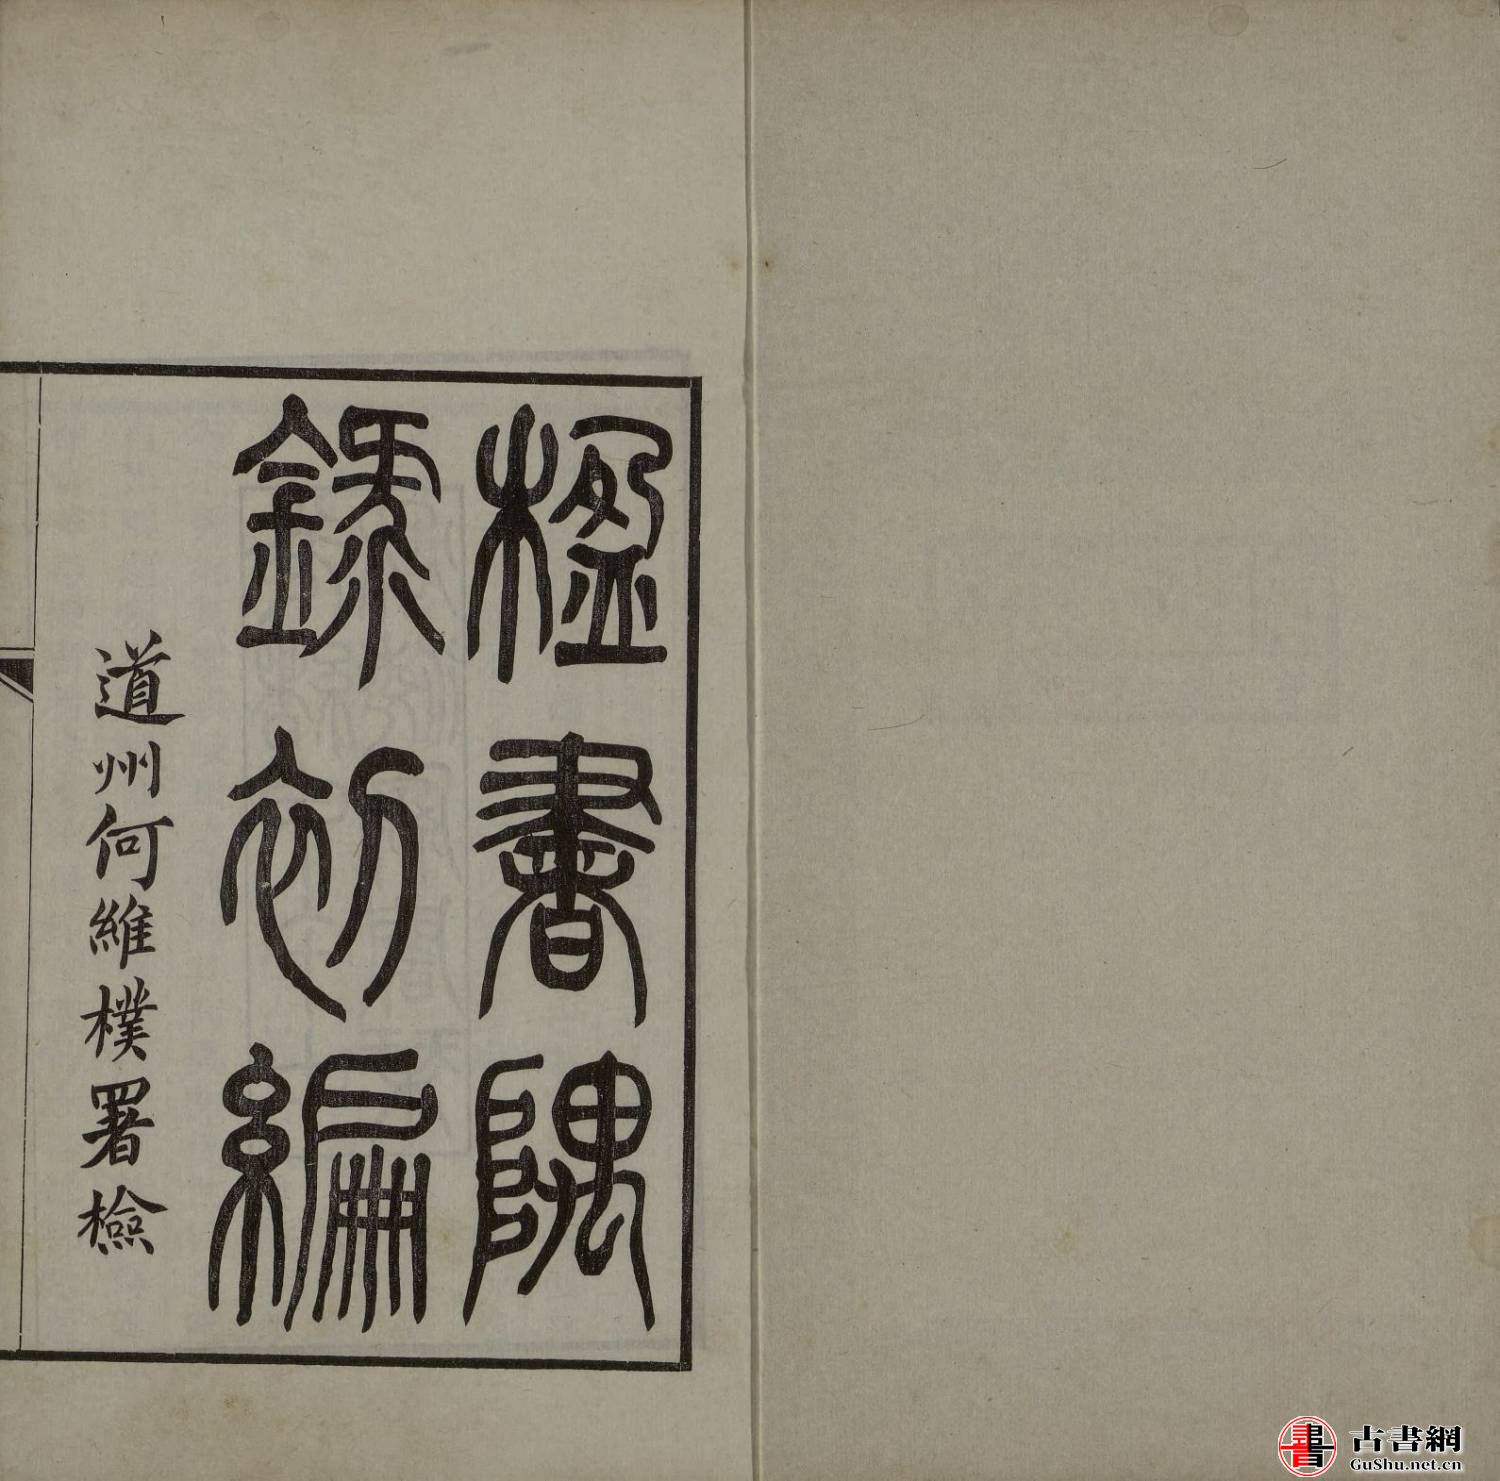 楹書隅
録初編
道州何維樸署檢
古書網
GuShu.net.cn